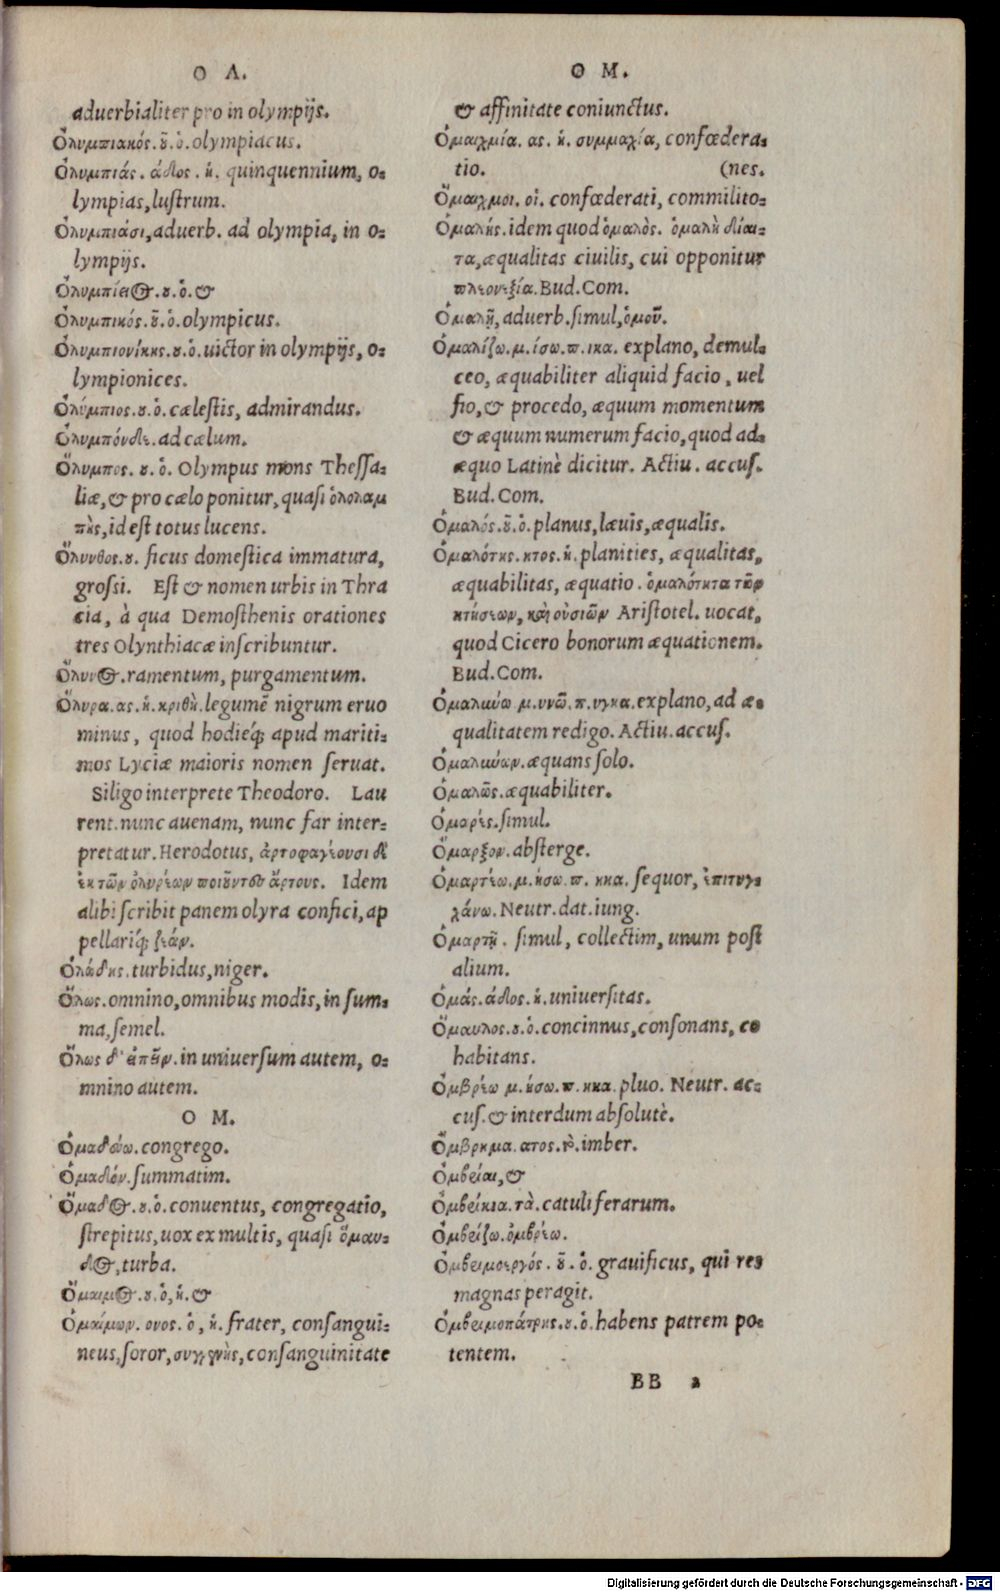 Ο Λ.
aduerbialiter pro in olympijs.
Ὀλυμπιακός.οῦ.ὁ.olympiacus.
Ὀλυμπιάς.άδος.ἡ. quinquennium, o-
lympias, lustrum.
Ὀλυμπιάσι, aduerb. ad olympia, in o-
lympijs.
Ὀλυμπίειος.ου.ὁ.&
Ὀλυμπικός.οῦ.ὁ.olympicus.
Ὀλυμπιονίκης.ου.ὁ. uictor in olympijs, o-
lympionices.
Ὀλύμπιος.ου.ὁ.cælestis, admirandus.
Ὀλυμπόνδε.ad cælum.
Ὄλυμπος.ου.ὁ. Olympus mons Thessa-
liæ, & pro cælo ponitur, quasi ὁλολαμ
πὴς, id est totus lucens.
Ὄλυνθος.ου. ficus domestica immatura,
grossi. Est & nomen urbis in Thra
cia, à qua Demosthenis orationes
tres Olynthiacæ inscribuntur.
Ὄλυνος.ramentum, purgamentum.
Ὄλυρα.ας.ἡ.κριθὴ.legumẽ nigrum eruo
minus, quod hodieq́; apud mariti-
mos Lyciæ maioris nomen seruat.
Siligo interprete Theodoro. Lau
rent. nunc auenam, nunc far inter-
pretatur. Herodotus, ἀρτοφαγέουσι δὲ
ἐκ τῶν ὀλυρέων ποιοῦντες ἄρτους. Idem
alibi scribit panem olyra confici, ap
pellariq́; ζεάν.
Ὀλώδης.turbidus, niger.
Ὅλως.omnino, omnibus modis, in sum-
ma, semel.
Ὅλως δ' εἰπεῖν.in uniuersum autem, o-
mnino autem.
Ο Μ.
Ὁμαδεύω.congrego.
Ὁμαδόν.summatim.
Ὅμαδος.ου.ὁ.conuentus, congregatio,
strepitus, uox ex multis, quasi ὅμαυ-
δος, turba.
Ὅμαιμος.ου.ὁ,ἡ.&
Ὁμαίμων.ονος.ὁ,ἡ. frater, consangui-
neus, soror, συγγενὴς, consanguinitate
Ο Μ.
& affinitate coniunctus.
Ὁμαιχμία.ας.ἡ.συμμαχία, confœdera-
tio. (nes.
Ὅμαιχμοι.οἱ.confœderati, commilito-
Ὁμαλής.idem quod ὁμαλὸς. ὁμαλὴ δίαι-
τα, æqualitas ciuilis, cui opponitur
πλεονεξία. Bud. Com.
Ὁμαλῇ, aduerb. simul, ὁμοῦ.
Ὁμαλίζω.μ.ίσω.π.ικα. explano, demul-
ceo, æquabiliter aliquid facio, uel
fio, & procedo, æquum momentum
& æquum numerum facio, quod ad-
æquo Latinè dicitur. Actiu. accus.
Bud. Com.
Ὁμαλός.οῦ.ὁ.planus, læuis, æqualis.
Ὁμαλότης.ητος.ἡ.planities, æqualitas,
æquabilitas, æquatio. ὁμαλότητα τῶν
κτήσεων, καὶ οὐσιῶν Aristotel. uocat,
quod Cicero bonorum æquationem.
Bud. Com.
Ὁμαλύνω.μ.υνῶ.π.υγκα.explano, ad æ-
qualitatem redigo. Actiu. accus.
Ὁμαλύνων.æquans solo.
Ὁμαλῶς.æquabiliter.
Ὁμαρές.simul.
Ὅμαρξον.absterge.
Ὁμαρτέω.μ.ήσω.π.ηκα. sequor, ἐπιτυγ-
χάνω. Neutr. dat. iung.
Ὁμαρτῇ. simul, collectim, unum post
alium.
Ὁμάς.άδος.ἡ.uniuersitas.
Ὅμαυλος.ου.ὁ.concinnus, consonans, co
habitans.
Ὀμβρέω μ.ήσω.π.ηκα. pluo. Neutr. ac-
cus. & interdum absolutè.
Ὄμβρημα.ατος.τὸ.imber.
Ὀμβρίαι, &
Ὀμβρίκια.τὰ.catuli ferarum.
Ὀμβρίζω.ὀμβρέω.
Ὀμβριμοεργός.οῦ.ὁ. grauificus, qui res
magnas peragit.
Ὀμβριμοπάτρης.ου.ὁ.habens patrem po-
tentem.
BB 2
Digitalisierung gefördert durch die Deutsche Forschungsgemeinschaft - DFG